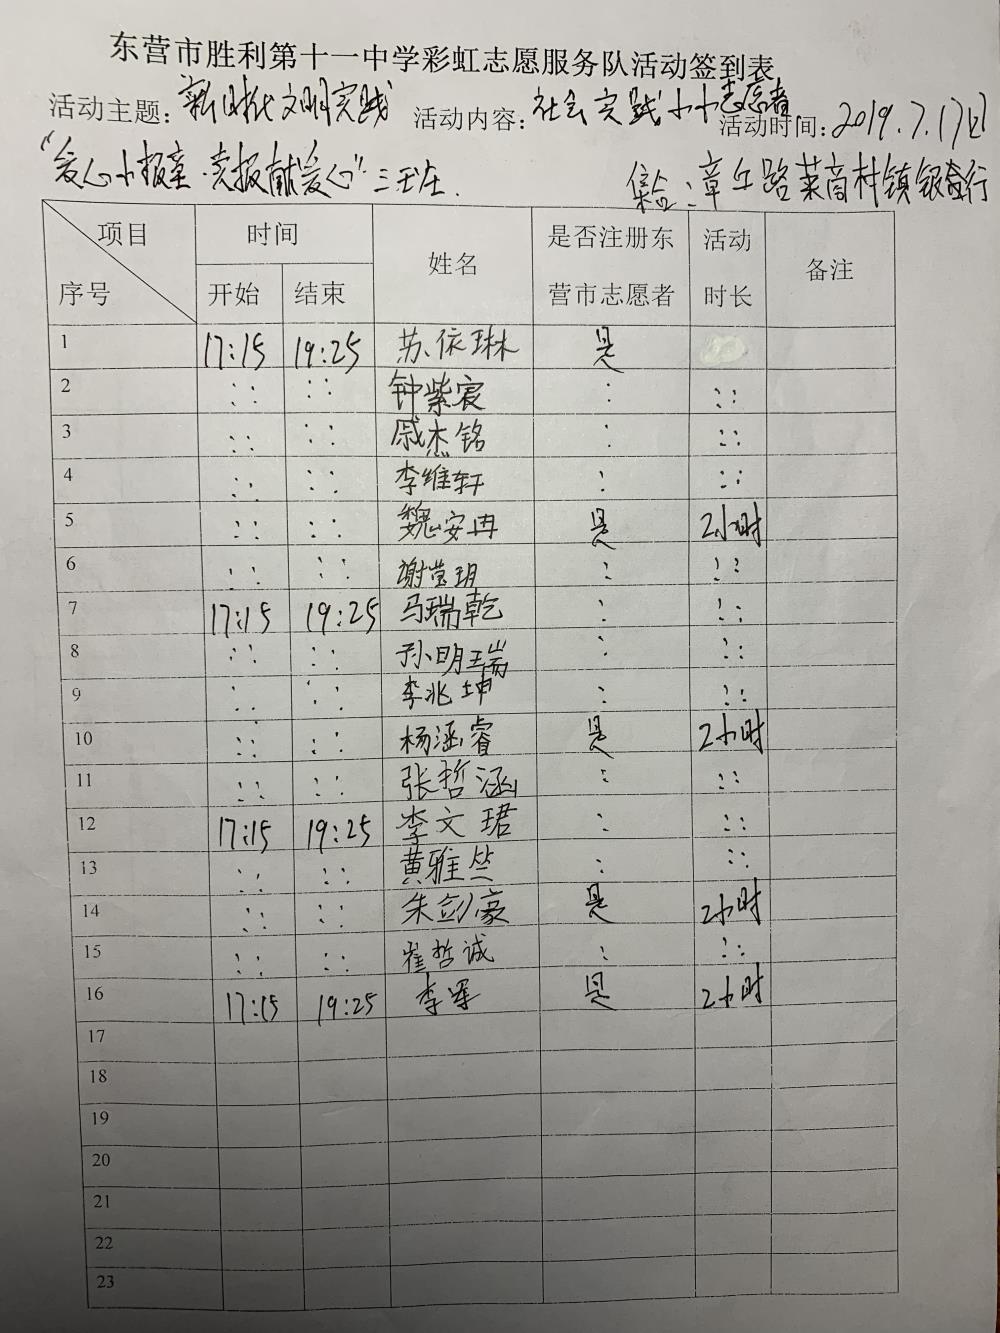 东营市胜利第十一中学彩虹志愿服务队活动签到表
活动主题：新时代文明实践 活动内容：社会实践小小志愿者 活动时间：2019.7.17日
“爱心小报童·卖报献爱心” 集合：章丘路莱商村镇银行
项目 时间 姓名 是否注册东 活动 备注
序号 开始 结束 营市志愿者 时长
1 17:15 19:25 苏依琳 是
2 : : : : 钟紫宸 : : :
3 : : : : 戚杰铭 : : :
4 : : : : 李维轩 : : :
5 : : : : 魏安冉 是 2小时
6 : : : : 谢莹玥 : : :
7 17:15 19:25 马瑞乾 : : :
8 : : : : 孙明瑞 : : :
9 : : : : 李兆坤 : : :
10 : : : : 杨涵睿 是 2小时
11 : : : : 张哲涵 : : :
12 17:15 19:25 李文珺 : : :
13 : : : : 黄雅竺 : : :
14 : : : : 朱剑豪 是 2小时
15 : : : : 崔哲诚 : : :
16 17:15 19:25 李军 是 2小时
17
18
19
20
21
22
23